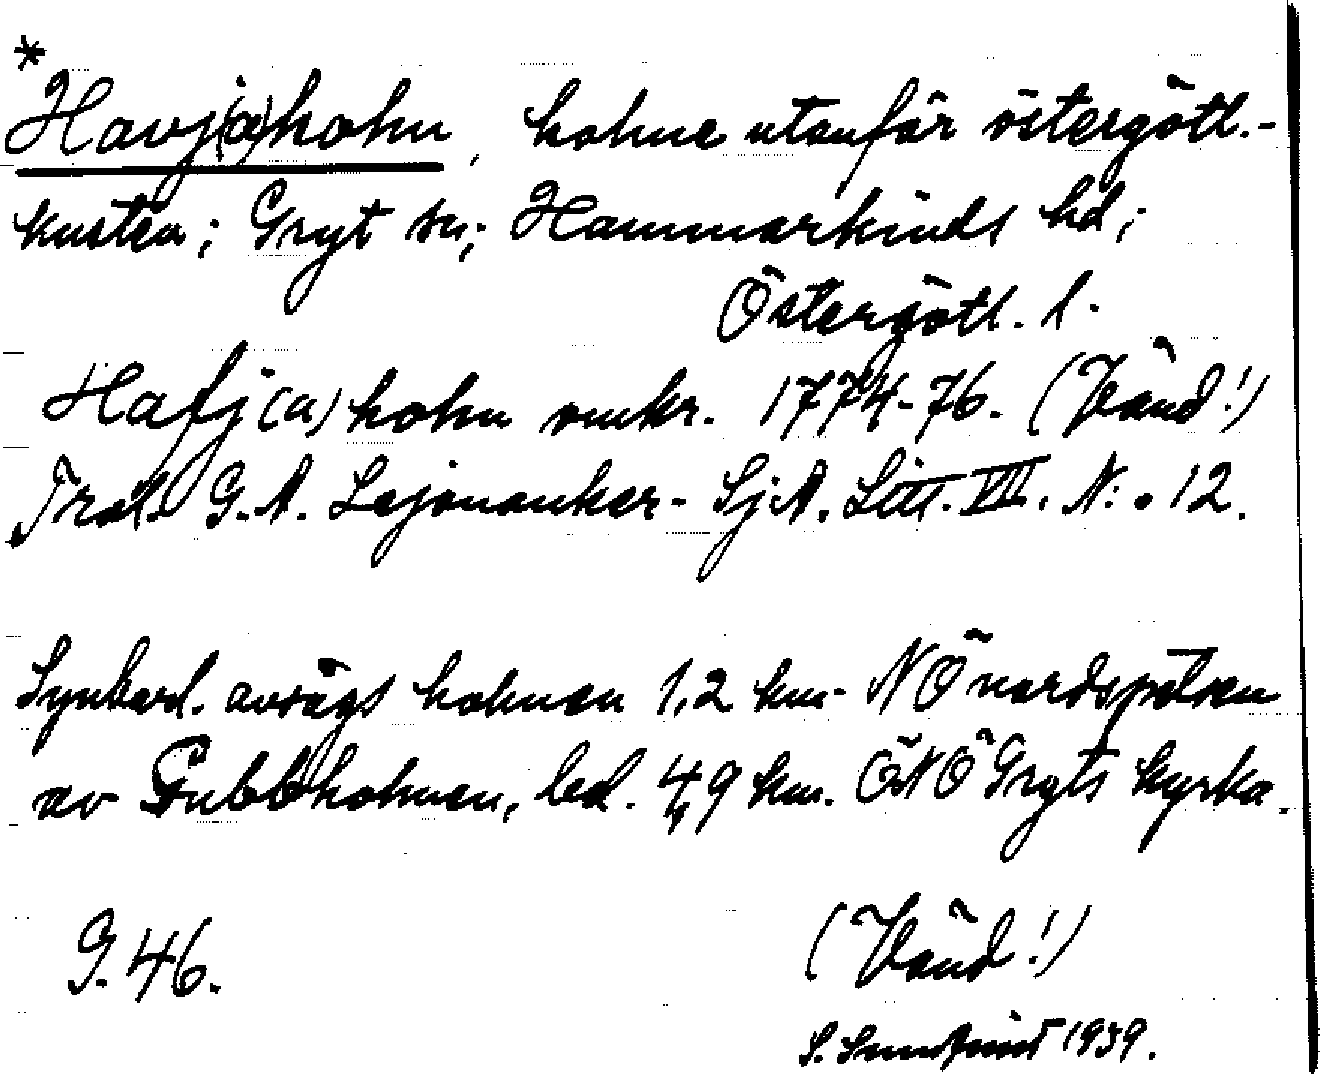 *
Havj(a)holm, holme utanför östergötl.-
kusten; Gryt sn; Hammarkinds hd;
Östergötl. l.
Hafj(a)holm omkr. 1774-76. (Vänd!)
Trol. G. A. Lejonanker - Sj.A. Litt. VII. N:o 12.
Synbarl. avsågs holmen 1,2 km NÖ nordspetsen
av Gubbholmen, bel. 4,9 km. ÖNÖ Gryts kyrka.
G. 46.
(Vänd!)
S. 1939.